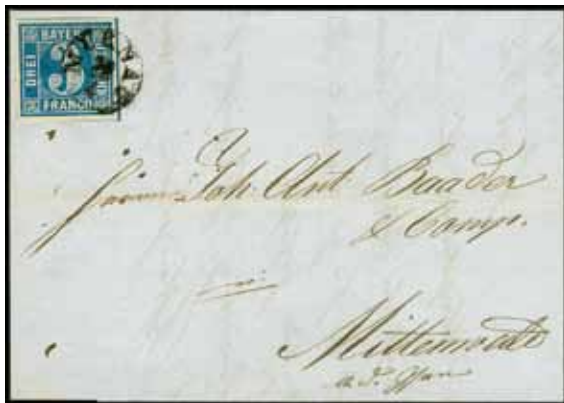 BAYERN
DREI
3
FRANCO
Herrn Joh. Ant. Baader
& Comp.
Mittenwald
a. d. Isar